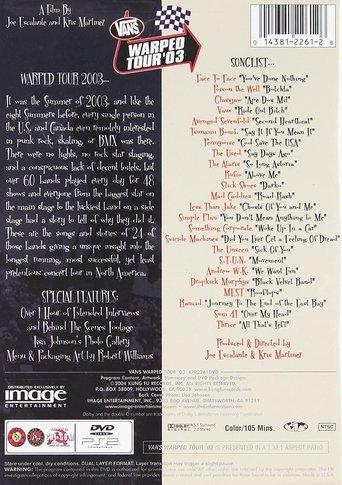 A Film By
Joe Escalante and Kris Martinez
VANS
WARPED
TOUR '03
0 14381-2261-2 6
WARPED TOUR 2003...
It was the Summer of 2003, and like the
eight Summers before, every single person in
the U.S. and Canada even remotely interested
in punk rock, skating, or BMX was there.
There were no lights, no rock star staging,
and a conspicuous lack of decent toilets, but
over 60 bands played every day for 48
shows and everyone from the biggest star on
the main stage to the luckiest band on a side
stage had a story to tell of why they did it.
These are the songs and stories of 24 of
those bands giving a unique insight into the
longest running, most successful, yet least
pretentious concert tour in North America.
SPECIAL FEATURES:
Over 1 Hour of Extended Interviews
and Behind The Scenes Footage
Lisa Johnson's Photo Gallery
Menu & Packaging Art by Robert Williams
SONGLIST...
Face To Face "You've Done Nothing"
Poison the Well "Botchla"
Glassjaw "Ape Dos Mil"
Vaux "Ride Out Bitch"
Avenged Sevenfold "Second Heartbeat"
Tsunami Bomb "Say It If You Mean It"
Pennywise "God Save The USA"
The Used "Say Days Ago"
The Ataris "So Long Astoria"
Rufio "Above Me"
Slick Shoes "Darko"
Mad Caddies "Road Rash"
Less Than Jake "Ghosts Of You and Me"
Simple Plan "You Don't Mean Anything to Me"
Something Corporate "Woke Up In a Car"
Suicide Machines "Did You Ever Get a Feeling Of Dread"
The Unseen "Sick Of You"
S.T.U.N. "Movement"
Andrew W.K. "We Want Fun"
Dropkick Murphys "Black Velvet Band"
MEST "Rooftops"
Rancid "Journey To The End of the East Bay"
Sum 41 "Over My Head"
Thrice "All That's Left"
Produced & Directed by
Joe Escalante & Kris Martinez
DISTRIBUTED EXCLUSIVELY BY
image
ENTERTAINMENT
VANS WARPED TOUR '03
Program Content, Artwork, Summary and DVD Package Design
© 2004 KUNG FU RECORDS, INC. ALL RIGHTS RESERVED.
P.O. BOX 38009, HOLLYWOOD, CA 90038
Back Cover Photo: Lisa Johnson
IMAGE ENTERTAINMENT, INC. 9333 OSO AVENUE, CHATSWORTH, CA 91311
ALL RIGHTS RESERVED.
www.image-entertainment.com
DVD
VIDEO
Color/105 Mins.
NTSC
VANS WARPED TOUR '03 IS PRESENTED IN A 1.33:1 ASPECT RATIO
Store under cool, dry conditions. DUAL LAYER FORMAT. Layer transition may trigger a slight pause.